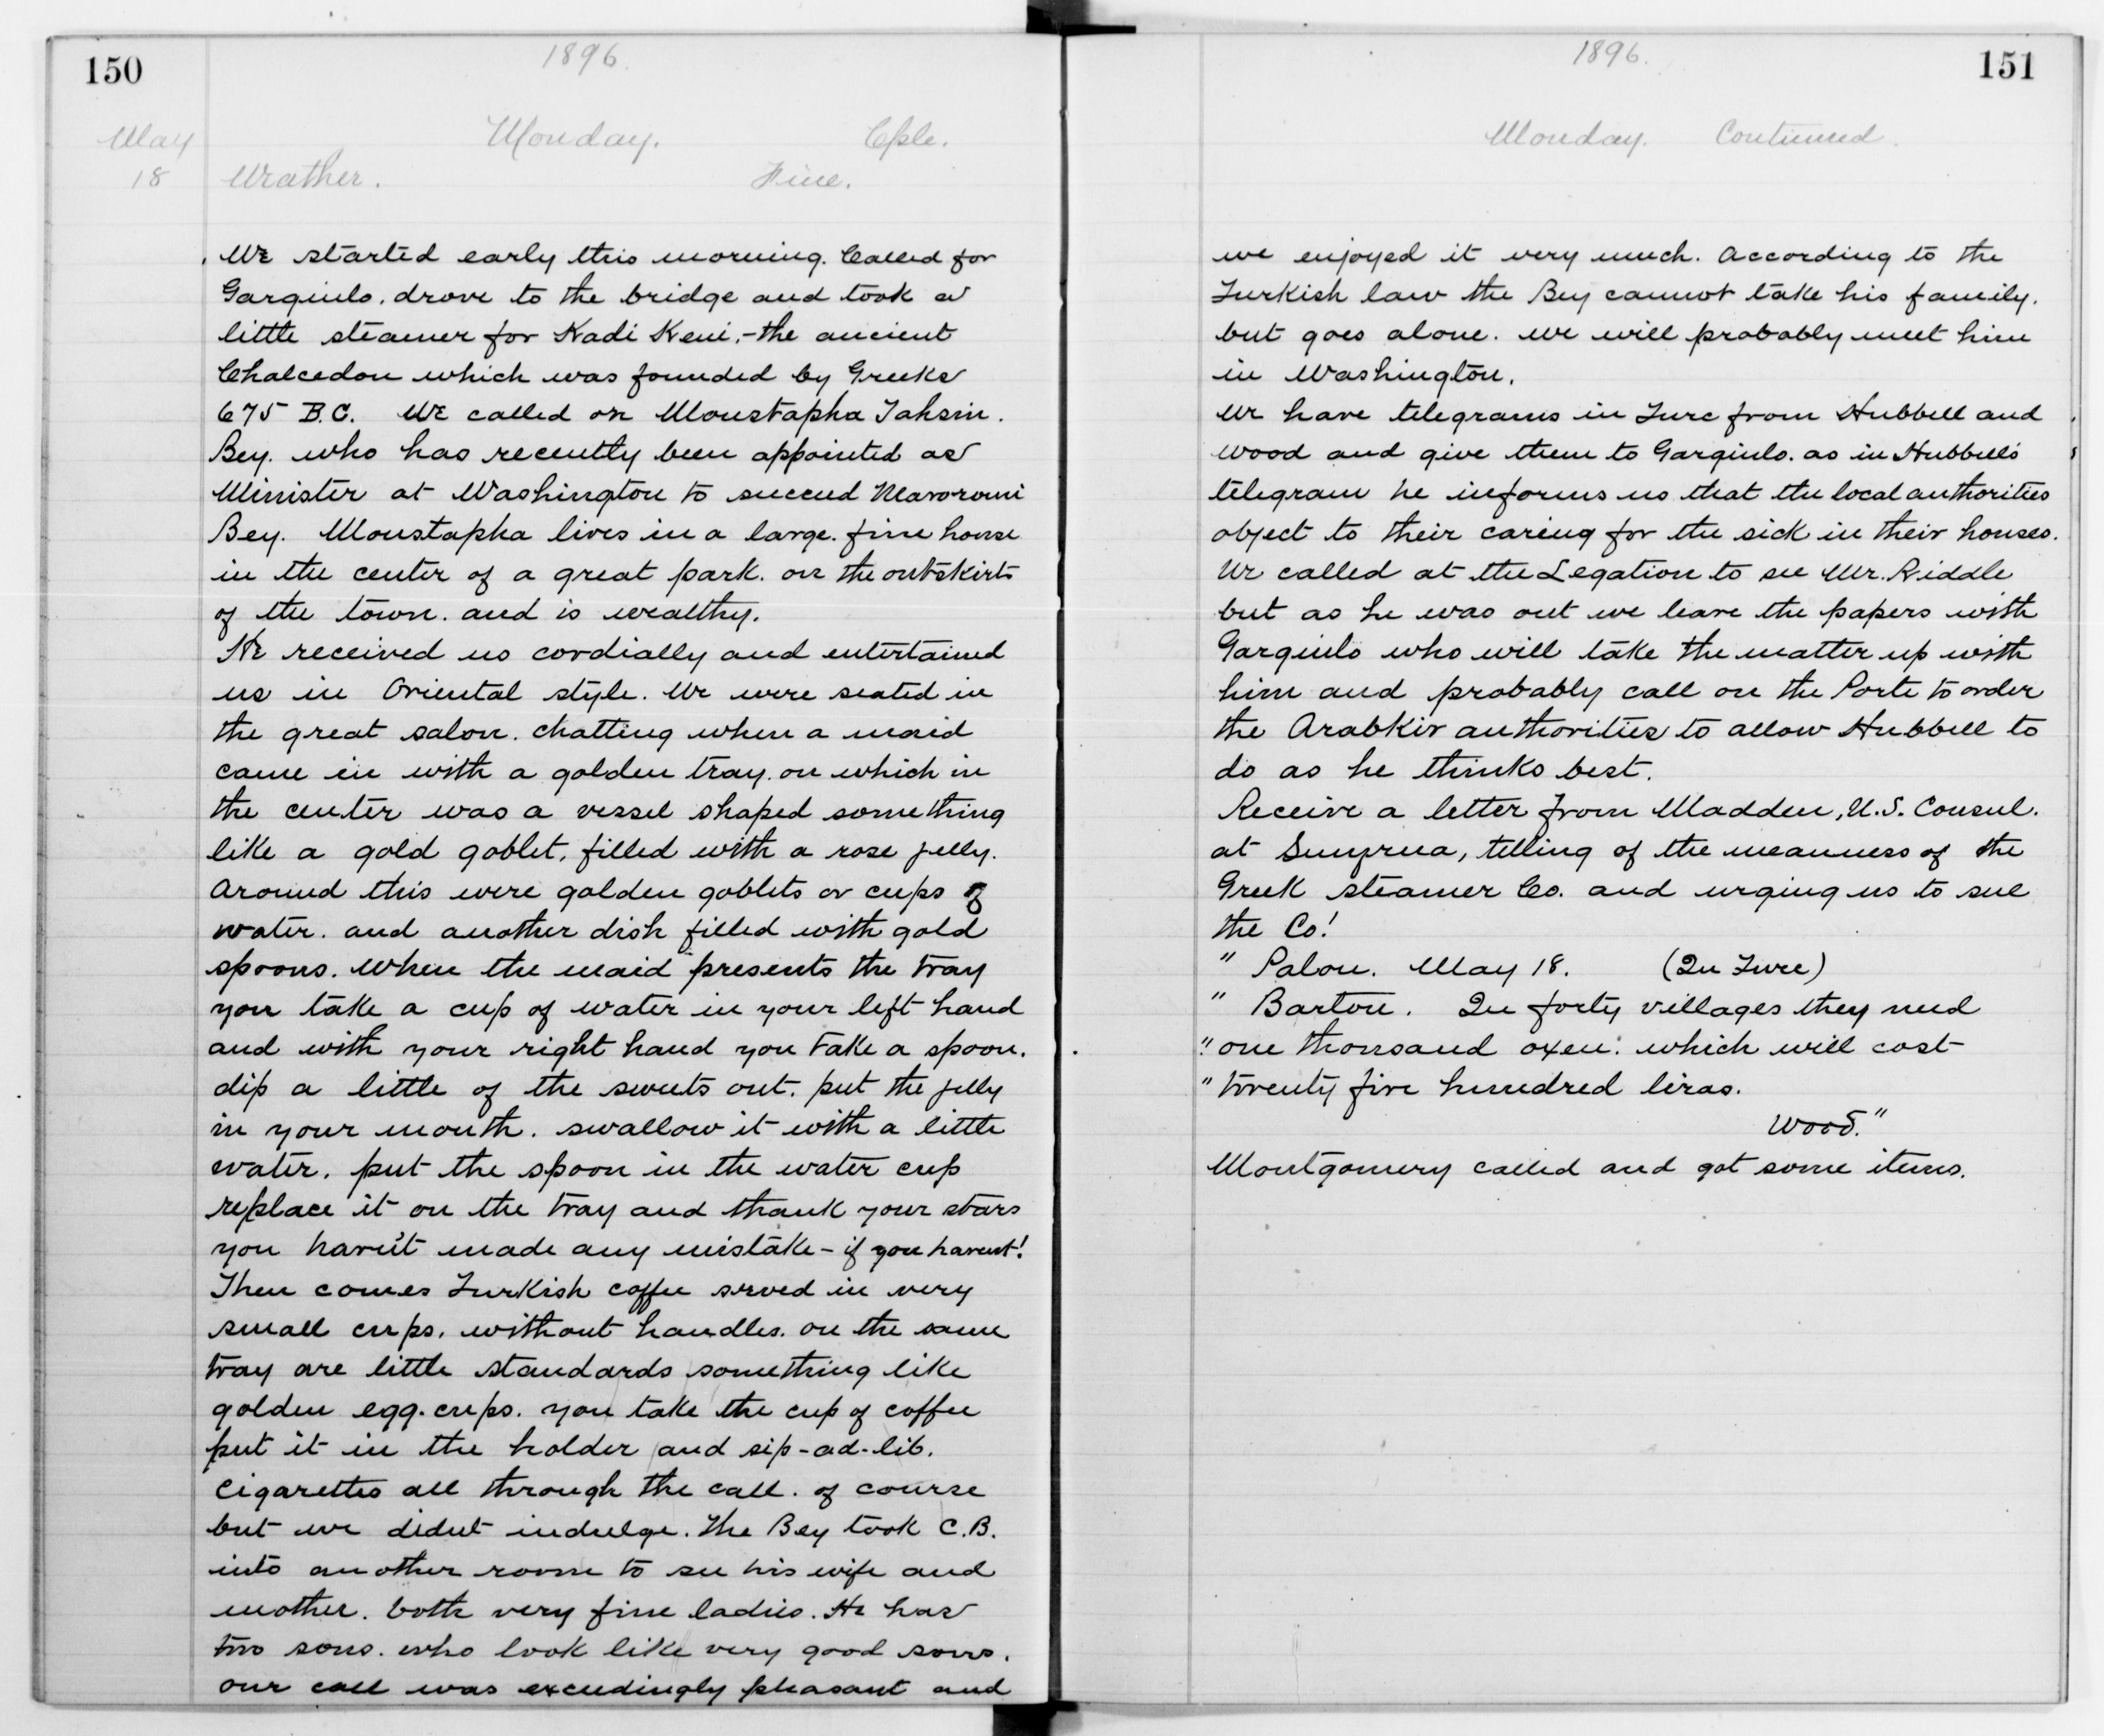 150
1896.
May
Monday. Cple.
18
Weather. Fine.
We started early this morning. Called for
Gargiulo. drove to the bridge and took a
little steamer for Kadi Keui,-the ancient
Chalcedon which was founded by Greeks
675 B.C. We called on Moustapha Tahsin.
Bey. who has recently been appointed as
Minister at Washington to succeed Mavoroni
Bey. Moustapha lives in a large. fine house
in the center of a great park. on the outskirts
of the town. and is wealthy.
He received us cordially and entertained
us in Oriental style. We were seated in
the great salon. chatting when a maid
came in with a golden tray. on which in
the center was a vessel shaped something
like a gold goblet, filled with a rose jelly.
Around this were golden goblets or cups of
water. and another dish filled with gold
spoons. When the maid presents the tray
you take a cup of water in your left hand
and with your right hand you take a spoon.
dip a little of the sweets out. put the jelly
in your mouth. swallow it with a little
water. put the spoon in the water cup
replace it on the tray and thank your stars
you haven't made any mistake - if you havent!
Then comes Turkish coffee served in very
small cups. without handles. on the same
tray are little standards something like
golden egg-cups. you take the cup of coffee
put it in the holder and sip-ad-lib.
Cigarettes all through the call. of course
but we didnt indulge. The Bey took C.B.
into another room to see his wife and
mother. both very fine ladies. He has
two sons. who look like very good sons.
our call was exceedingly pleasant and
1896.
151
Monday. Continued.
we enjoyed it very much. According to the
Turkish law the Bey cannot take his family.
but goes alone. We will probably meet him
in Washington.
We have telegrams in Turc from Hubbell and
Wood and give them to Gargiulo. as in Hubbell's
telegram he informs us that the local authorities
object to their caring for the sick in their houses.
We called at the Legation to see Mr. Riddle
but as he was out we leave the papers with
Gargiulo who will take the matter up with
him and probably call on the Porte to order
the Arabkir authorities to allow Hubbell to
do as he thinks best.
Receive a letter from Madden, U.S. Consul.
at Smyrna, telling of the meanness of the
Greek steamer Co. and urging us to sue
the Co!
" Palou. May 18. (In Turc)
" Barton. In forty villages they need
" one thousand oxen. which will cost
" twenty five hundred liras.
Wood."
Montgomery called and got some items.